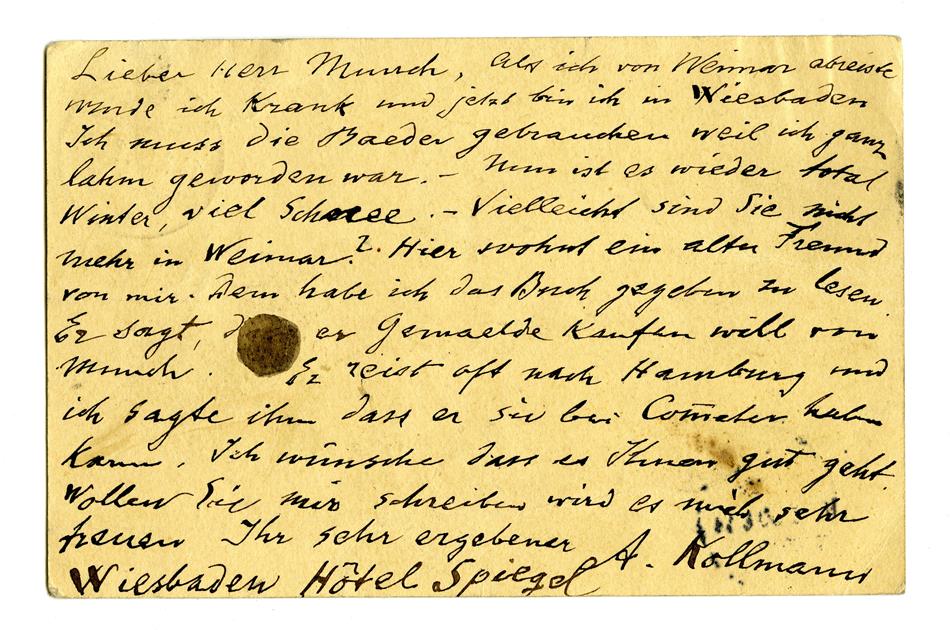 Lieber Herr Munch, Als ich von Weimar abreiste
wurde ich Krank und jetzt bin ich in Wiesbaden
Ich muss die Baeder gebrauchen weil ich ganz
lahm geworden war. – Nun ist es wieder total
Winter, viel Schnee. – Vielleicht sind Sie nicht
mehr in Weimar?. Hier wohnt ein alter Freund
von mir. Dem habe ich das Buch gegeben zu lesen
Er sagt, er Gemaelde Kaufen will von
Munch. Er reist oft nach Hamburg und
ich sagte ihm dass er sie bei Com̅eter haben
Kann. Ich wünsche dass es Ihnen gut geht.
Wollen Sie mir schreiben wird es mich sehr
freuen Ihr sehr ergebener A. Kollmann
Wiesbaden Hôtel Spiegel